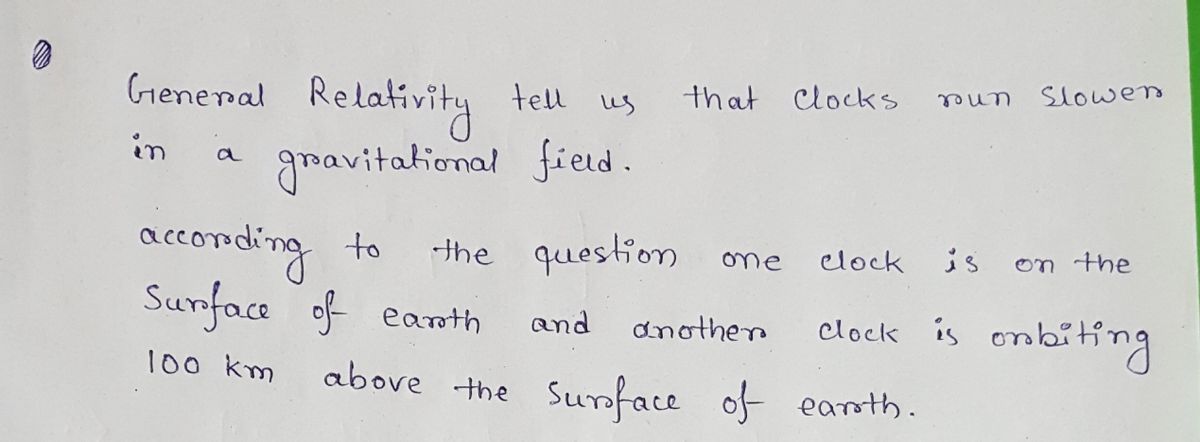 General Relativity tell us that clocks run slower
in a gravitational field.
according to the question one clock is on the
Surface of earth and another clock is orbiting
100 km above the surface of earth.